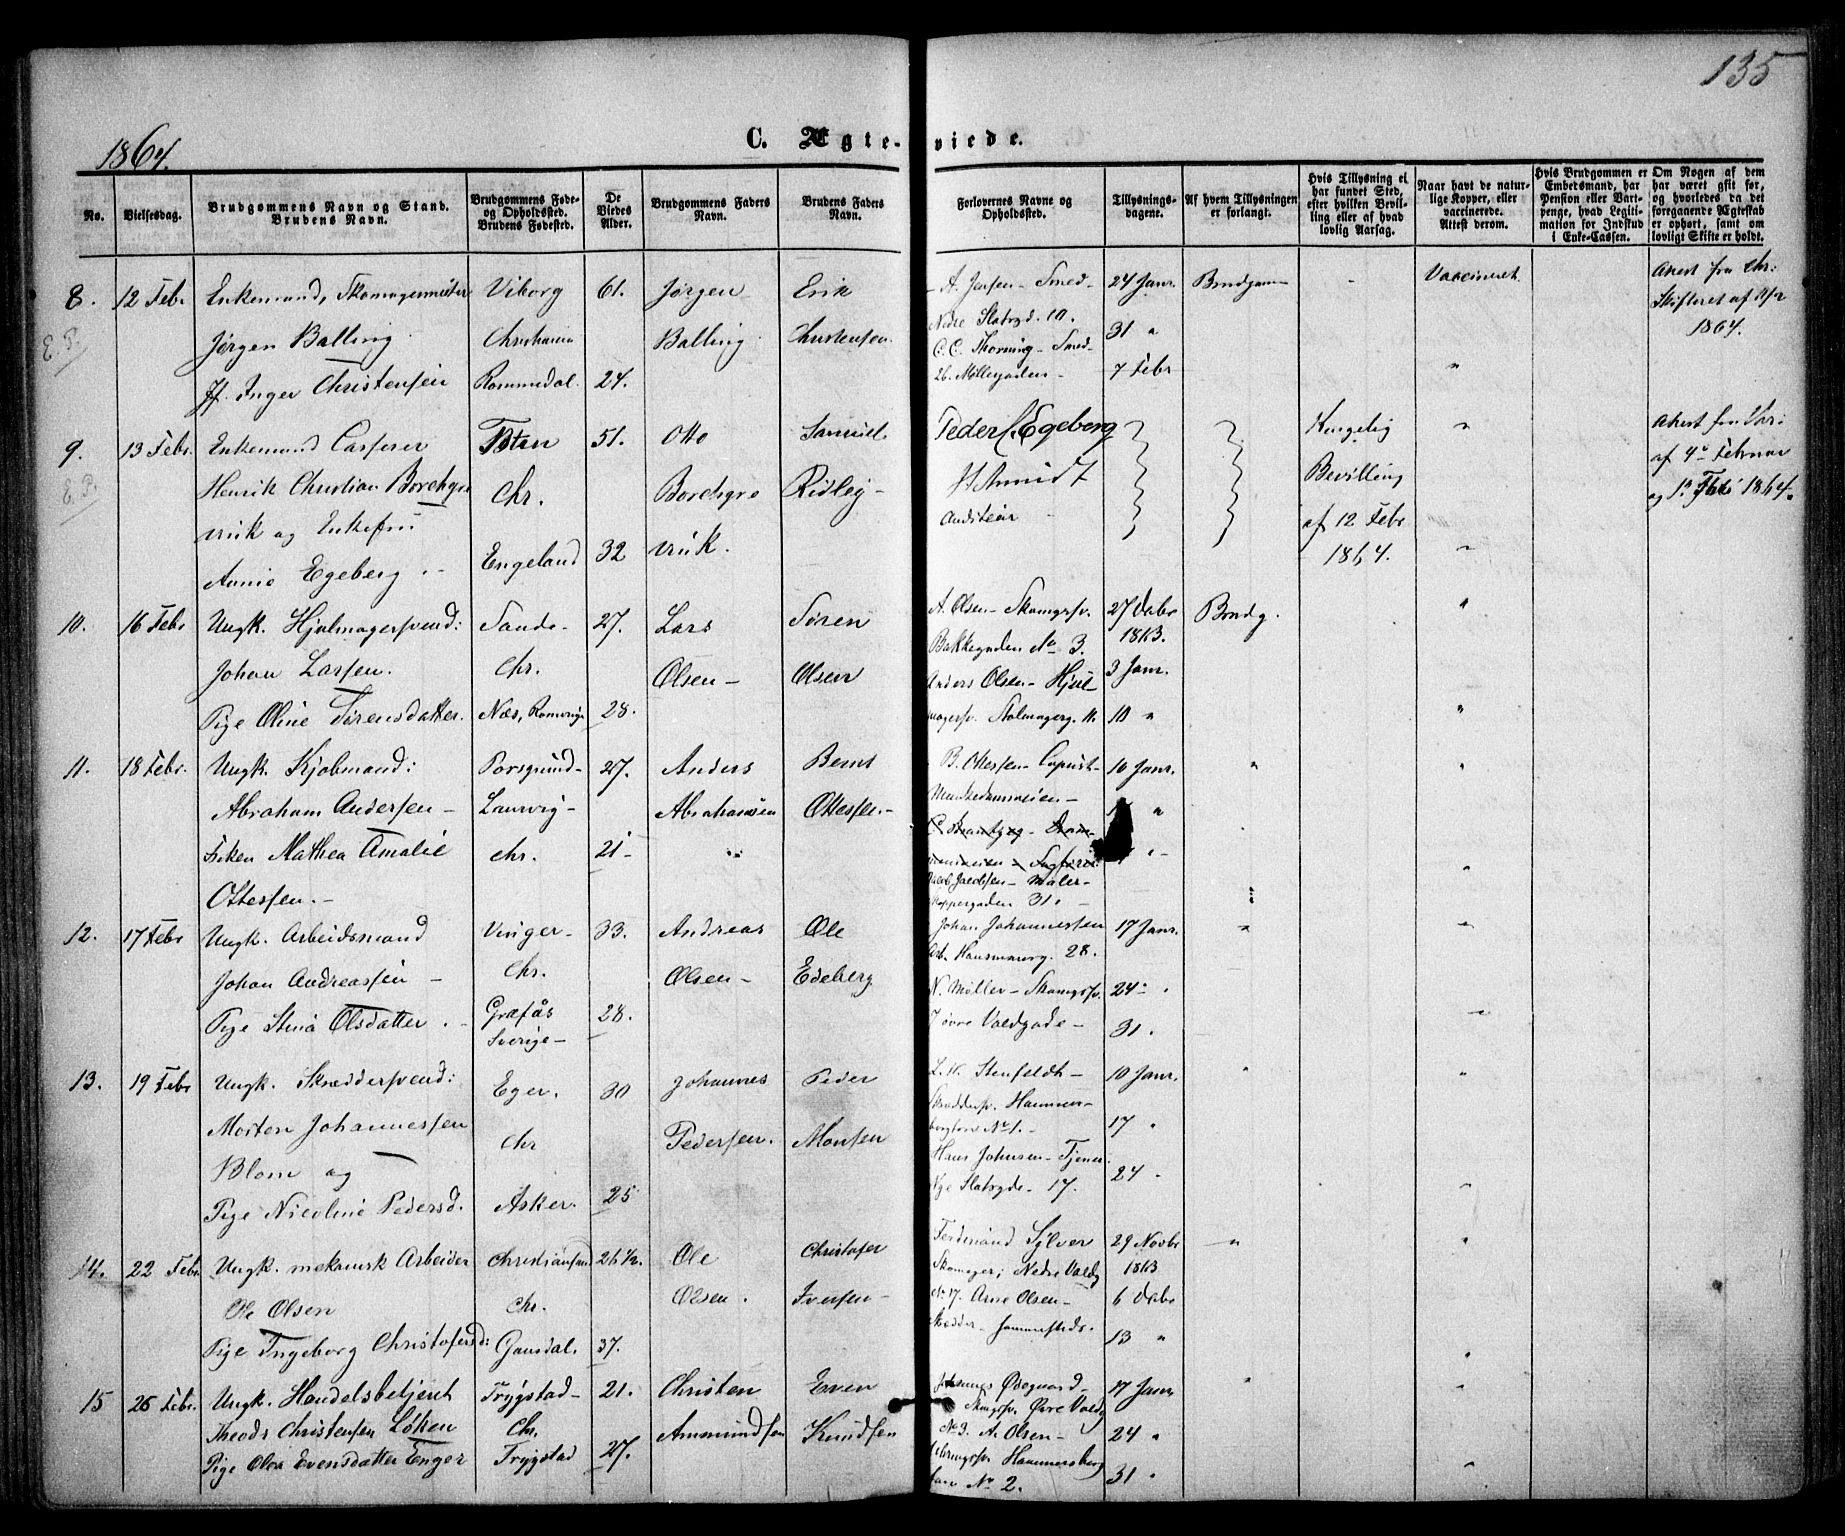 135
1864.
C. Ægteviede.
No.
Vielsesdag.
Brudgommens Navn og Stand.
Brudens Navn.
Brudgommens Føde-
og Opholdssted.
Brudens Fødested.
De
Viedes
Alder.
Brudgommens Faders
Navn.
Brudens Faders
Navn.
Forlovernes Navne og
Opholdssted.
Tillysnings-
dagene.
Af hvem Tillysningen
er forlangt.
Hvis Tillysning ei
har fundet Sted,
efter hvilken Bevil-
ling eller af hvad
lovlig Aarsag.
Naar havt de natur-
lige Kopper, eller
vaccinerede.
Attest derom.
Hvis Brudgommen er
Embedsmand, har
Pension eller Vart-
penge, hvad Legiti-
mation for Indskud
i Enke-Cassen.
Om Nogen af dem
har været gift før,
og hvorledes da det
foregaaende Ægteskab
er ophørt, samt om
lovligt Skifte er holdt.
8. 12 Febr Enkemand, Skomagermester Viborg 61. Jørgen Erik A. Jensen - Smed - 24 Janr. Brudgom - Vaccineret Attest fra Chr:
E. P. Jørgen Balling Christiania Balling Christensen Nedre Slotsgd. 10. 31 " Skifteret af
C. C. Thorning - Smed - 1864.
Jf. Inger Christensen Rommedal. 24. 26. Møllegaden - 7 Febr "
9. 13 Febr. Enkemand Casserer Toten 51. Otto Samuel Peder C. Egeberg Kongelig " Attest fra
E. P. Henrik Christian Borchgre Chr. Borchgre Ridley - H Arnidt Bevilling af 4de Februar
vink og Enkefru vink. Auditeur af 12 Febr og 1864.
Annie Egeberg Engeland 32 1864. "
10. 16 Febr Ungk. Hjulmagersvend: Sande - 27. Lars Søren A. Olsen - Skomgrsv. 27 Decbr Brudg. "
Johan Larsen. Chr. Olsen - Olsen Bakkegaden No 3. 1863.
Anders Olsen - Hjul 3 Janr.
Pige Oline Sørensdatter. Næs, Romerige 28. magersv. Stolmagerg. 11. 10 " "
11. 18 Febr. Ungk. Kjøbmand: Porsgrund - 27. Anders Bernt B. Ottesen - Copiist - 10 Janr. " "
Abraham Andersen - Laurvig - Abrahamsen Ottesen - Munkedamsveien - "
Frøken Mathea Amalie Chr. 21 - "
Ottesen. - Jacob Jacobsen - Maler - "
Koppergaden 31.
12. 17 Febr Ungk. Arbeidsmand Vinger - 33. Andreas Ole Johan Johannessen 17 Janr. " "
Johan Andreassen - Chr. Olsen - Edeberg Arb. Hausmannsg. 28.
N. Møller - Skomgrsv. 24 "
Pige Stina Olsdatter. Grefås 28. 7 øvre Voldgade - 31. "
Sverige -
13. 19 Febr Ungk. Skræddersvend: Eger. 30 Johannes Peder Stenfeldt - 10 Janr. " "
Morten Johannessen Chr Pedersen. Monsen Skræddersv. Hammers- 17 "
Blom og borgtorv No 1. -
Hans Johnsen - Tjener. 24 "
Pige Nicoline Pedersd. Asker. 25 Nye Slotsgde - 17. "
14. 22 Febr. Ungk. mekanisk Arbeider Christiansund 26 ½. Ole Christofer Ferdinand Sylver 29 Novbr " "
Ole Olsen Chr. Olsen. Iversen - Skomager; Nedre Voldg 1863
No 17. Arne Olsen - 6 Decbr
Pige Ingeborg Christofersd: Gausdal. 37. Skrædder - 13 " "
15 26 Febr. Ungk. Handelsbetjent Trygstad - 21. Christen Even Johannes Ødegaard - 17 Janr " "
Theods Christensen Løken Chr. Ammundsen Knudsen Skomgrsv. Øvre Voldg
No 3. A. Olsen - 24 "
Pige Olea Evensdatter Enger Trygstad 27. Hammersborg 31 " "
No 2.